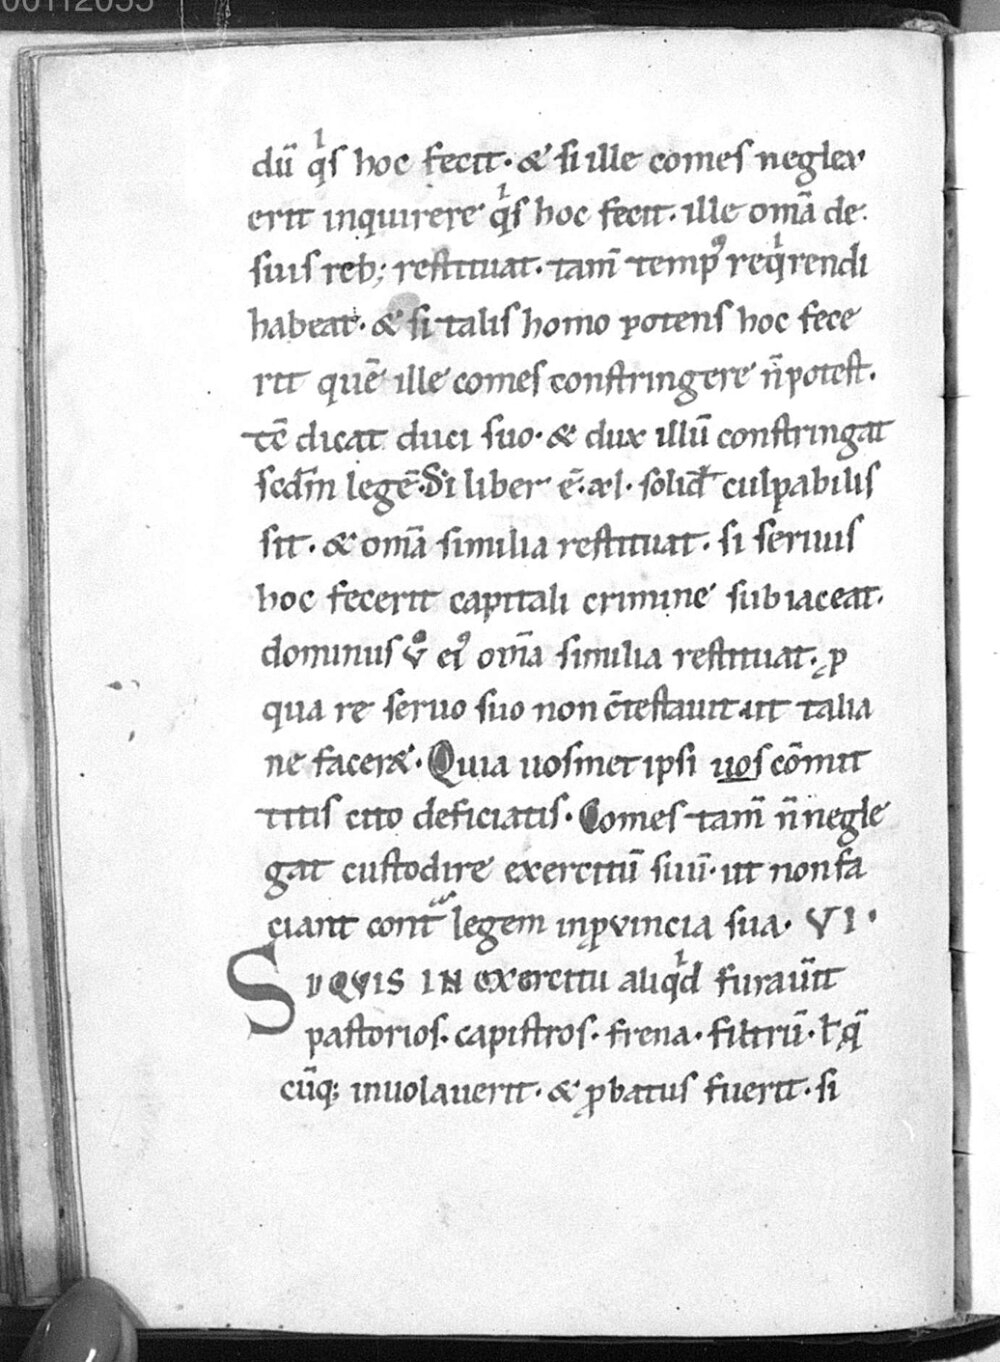 dū qͥs hoc fecit· & si ille comes neglex
erit inquirere qͥs hoc fecit· ille om̄a de
suis reb; restituat· tam̄ tempꝰ reqͥrendi
habeat· & si talis homo potens hoc fece
rit quē ille comes constringere n̄ potest·
tc̄ dicat duci suo· & dux illū constringat
scdm̄ legē· Si liber ē· xl· solid̄ culpabilis
sit· & om̄a similia restituat· si seruus
hoc fecerit capitali crimine subiaceat·
dominus vͦ eiꝰ om̄a similia restituat· ꝓ
qua re seruo suo non c̄testauit ut talia
ne faceret· Quia uosmet ipsi uos cōmit
titis cito deficiatis· Comes tam̄ n̄ negle
gat custodire exercitū suū· ut non fa
ciant contͣ legem in ꝓvincia sua· VI·
SVQVIS IN exercitu aliqͥd furaūit
pastorios· capistros· frena· filtrū· ł q̄
cūq; inuolauerit· & ꝓbatus fuerit· si